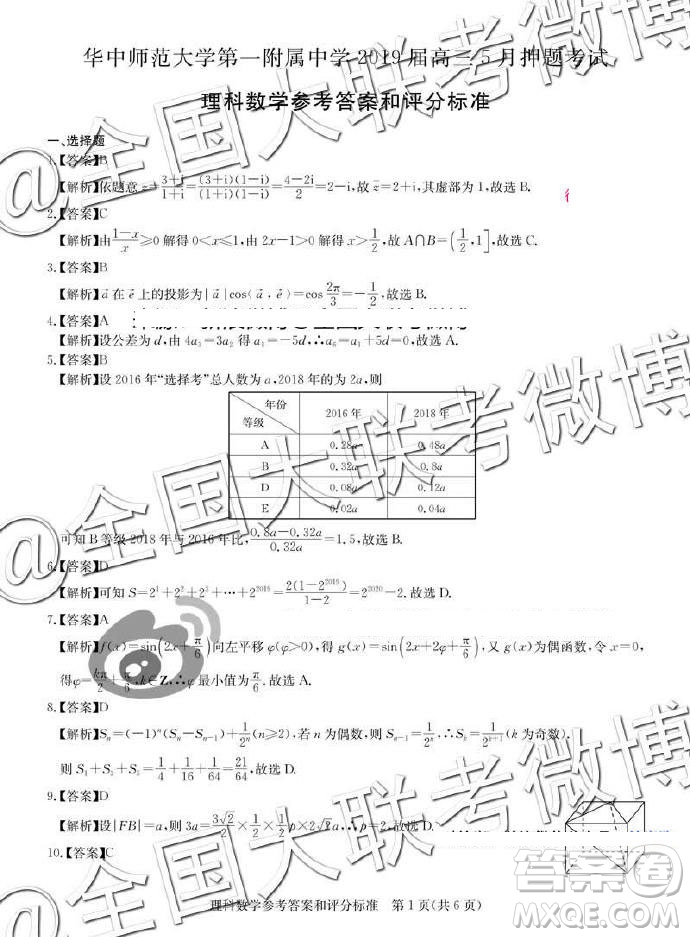 华中师范大学第一附属中学2019届高三5月押题考试
理科数学参考答案和评分标准
一、选择题
1.【答案】B
【解析】依题意 z=\frac{3+i}{1+i}=\frac{(3+i)(1-i)}{(1+i)(1-i)}=\frac{4-2i}{2}=2-i,故 \bar{z}=2+i,其虚部为1,故选B.
2.【答案】C
【解析】由\frac{1-x}{x}≥0 解得 0<x≤1,由 2x-1>0 解得 x>\frac{1}{2},故 A∩B=(\frac{1}{2},1],故选C.
3.【答案】B
【解析】\vec{a} 在 \vec{e} 上的投影为|\vec{a}|cos(\vec{a},\vec{e})=cos\frac{2π}{3}=-\frac{1}{2},故选B.
4.【答案】A
【解析】设公差为d,由 4a_3=3a_2 得 a_1=-5d,∴a_6=a_1+5d=0,故选A.
5.【答案】B
【解析】设2016年“选择考”总人数为a,2018年的为2a,则
年份 等级 2016年 2018年
A 0.28a 0.48a
B 0.32a 0.8a
D 0.08a 0.12a
E 0.02a 0.04a
可知B等级2018年与2016年比,\frac{0.8a-0.32a}{0.32a}=1.5,故选B.
6.【答案】D
【解析】可知 S=2^1+2^2+2^3+…+2^{2019}=\frac{2(1-2^{2019})}{1-2}=2^{2020}-2.故选D.
7.【答案】A
【解析】f(x)=sin(2x+\frac{π}{6})向左平移φ(φ>0),得 g(x)=sin(2x+2φ+\frac{π}{6}),又 g(x)为偶函数,令 x=0,
得φ=\frac{kπ}{2}+\frac{π}{6},k∈Z,∴φ最小值为\frac{π}{6}.故选A.
8.【答案】D
【解析】S_n=(-1)^n(S_n-S_{n-1})+\frac{1}{2^n}(n≥2),若 n 为偶数,则 S_{n-1}=\frac{1}{2^n},∴S_k=\frac{1}{2^{k+1}}(k 为奇数).
则 S_1+S_3+S_5=\frac{1}{4}+\frac{1}{16}+\frac{1}{64}=\frac{21}{64},故选D.
9.【答案】D
【解析】设|FB|=a,则 3a=\frac{3\sqrt{2}}{2}×\frac{1}{2}×\frac{1}{2}p×2\sqrt{2}a,∴p=2,故选D.
10.【答案】C
理科数学参考答案和评分标准 第1页(共6页)
@全国大联考微博
@全国大联考微博
@全国大联考微博
答案圈
MXQE.COM